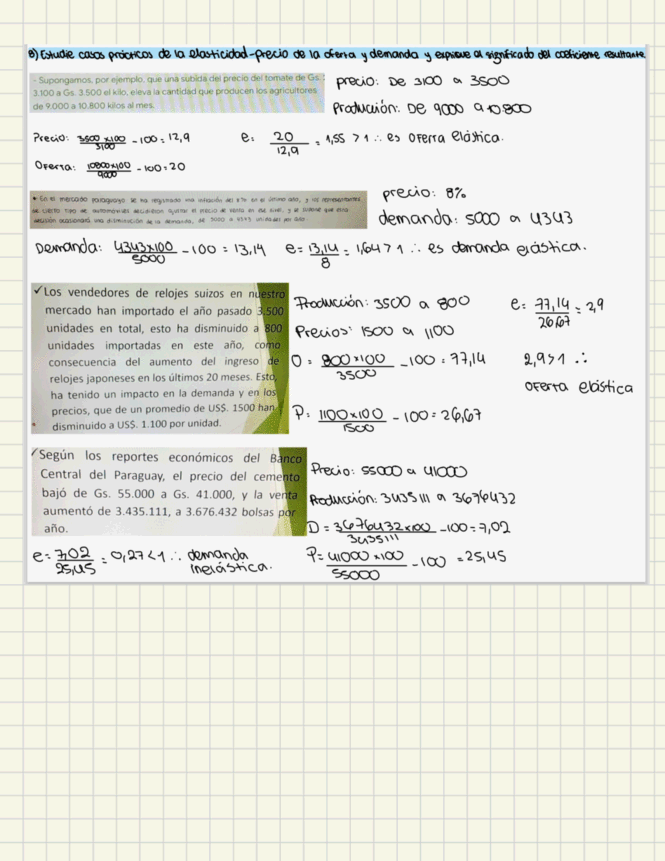 8) Estudie casos prácticos de la elasticidad-precio de la oferta y demanda y explique el significado del coeficiente resultante.
- Supongamos, por ejemplo, que una subida del precio del tomate de Gs.
3.100 a Gs. 3.500 el kilo, eleva la cantidad que producen los agricultores
de 9.000 a 10.800 kilos al mes.
precio: De 3100 a 3500
Producción: De 9000 a 10800
Precio: 3500 x100 / 3100 - 100 = 12,9
e: 20 / 12,9 = 1,55 > 1 ∴ es oferta elástica.
Oferta: 10800x100 / 9000 - 100 = 20
En el mercado paraguayo se ha registrado una inflación del 8% en el último año, y los representantes
de cierto tipo de automóviles decidieron ajustar el precio de venta en ese nivel, y se supone que esta
decisión ocasionará una disminución de la demanda, de 5000 a 4343 unidades por año
precio: 8%
demanda: 5000 a 4343
Demanda: 4343x100 / 5000 - 100 = 13,14 e = 13,14 / 8 = 1,64 > 1 ∴ es demanda elástica.
✓Los vendedores de relojes suizos en nuestro
mercado han importado el año pasado 3.500
unidades en total, esto ha disminuido a 800
unidades importadas en este año, como
consecuencia del aumento del ingreso de
relojes japoneses en los últimos 20 meses. Esto,
ha tenido un impacto en la demanda y en los
precios, que de un promedio de US$. 1500 han
disminuido a US$. 1.100 por unidad.
Producción: 3500 a 800
Precios: 1500 a 1100
O = 800x100 / 3500 - 100 = 77,14
P: 1100x100 / 1500 - 100 = 26,67
e: 77,14 / 26,67 = 2,9
2,9>1 ∴
oferta elástica
✓Según los reportes económicos del Banco
Central del Paraguay, el precio del cemento
bajó de Gs. 55.000 a Gs. 41.000, y la venta
aumentó de 3.435.111, a 3.676.432 bolsas por
año.
Precio: 55000 a 41000
Producción: 3435111 a 3676432
D = 3676432x100 / 3435111 - 100 = 7,02
P = 41000 x100 / 55000 - 100 = 25,45
e = 7,02 / 25,45 = 0,27 < 1 ∴ demanda
inelástica.